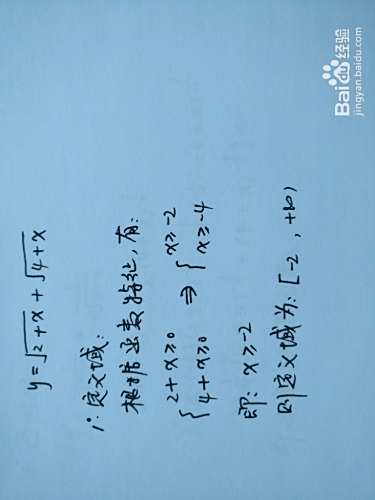 y=√2+x+√4+x
i: 定义域:
根据函数特征, 有:
{2+x≥0 4+x≥0 ⇒ {x≥-2 x≥-4
即: x≥-2
则定义域为: [-2, +∞)
Baidu经验
jingyan.baidu.com